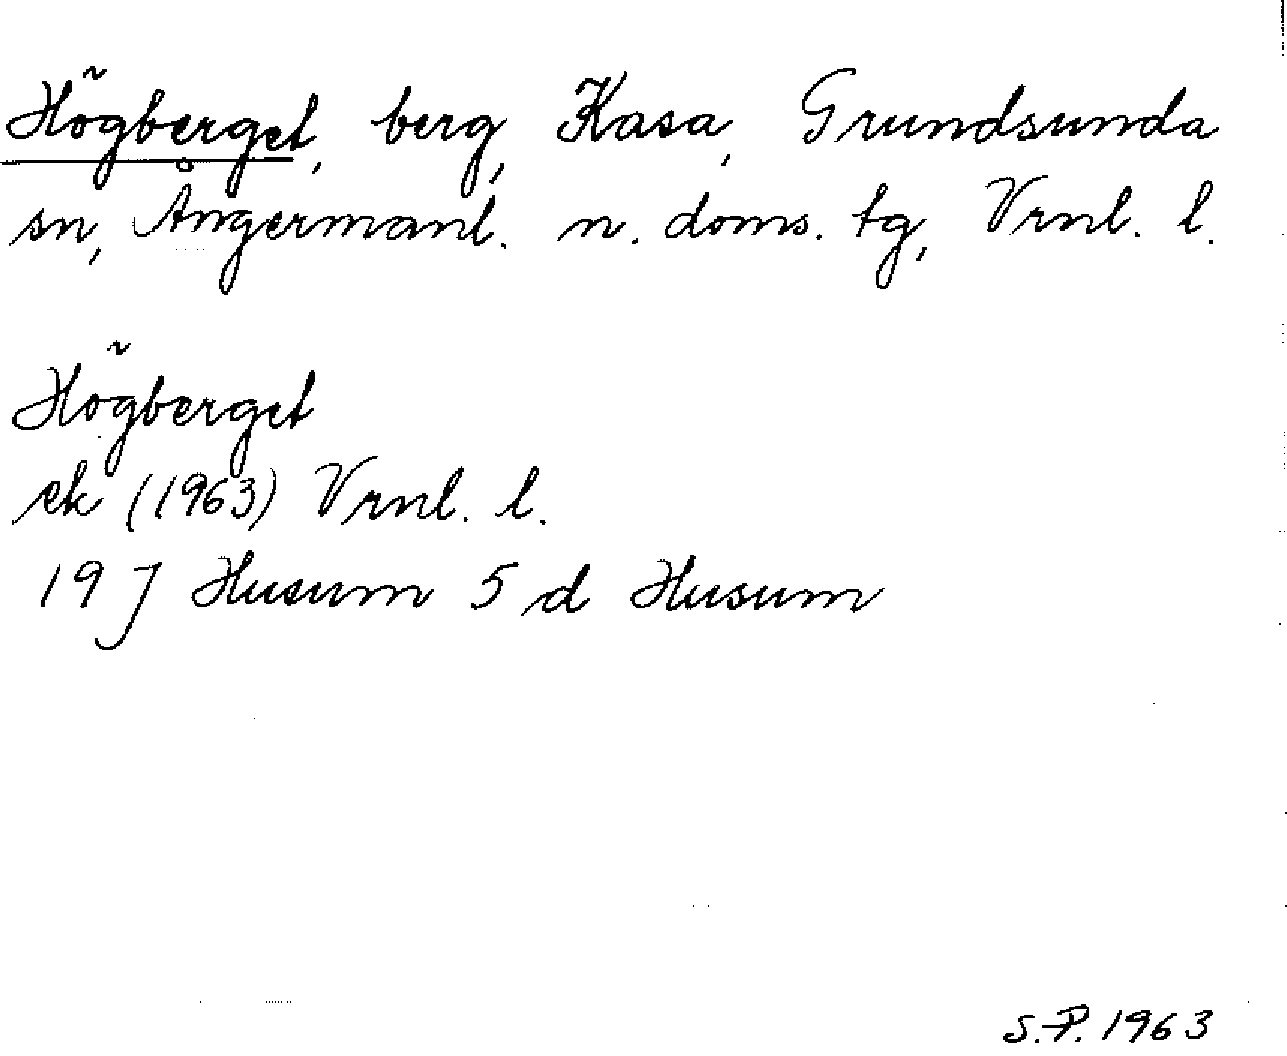 Högberget, berg, Kasa, Grundsunda
sn, Ångermanl. n. doms. tg, Vrnl. l.
Högberget
ek (1963) Vrnl. l.
19 J Husum 5 d Husum
S.P. 1963